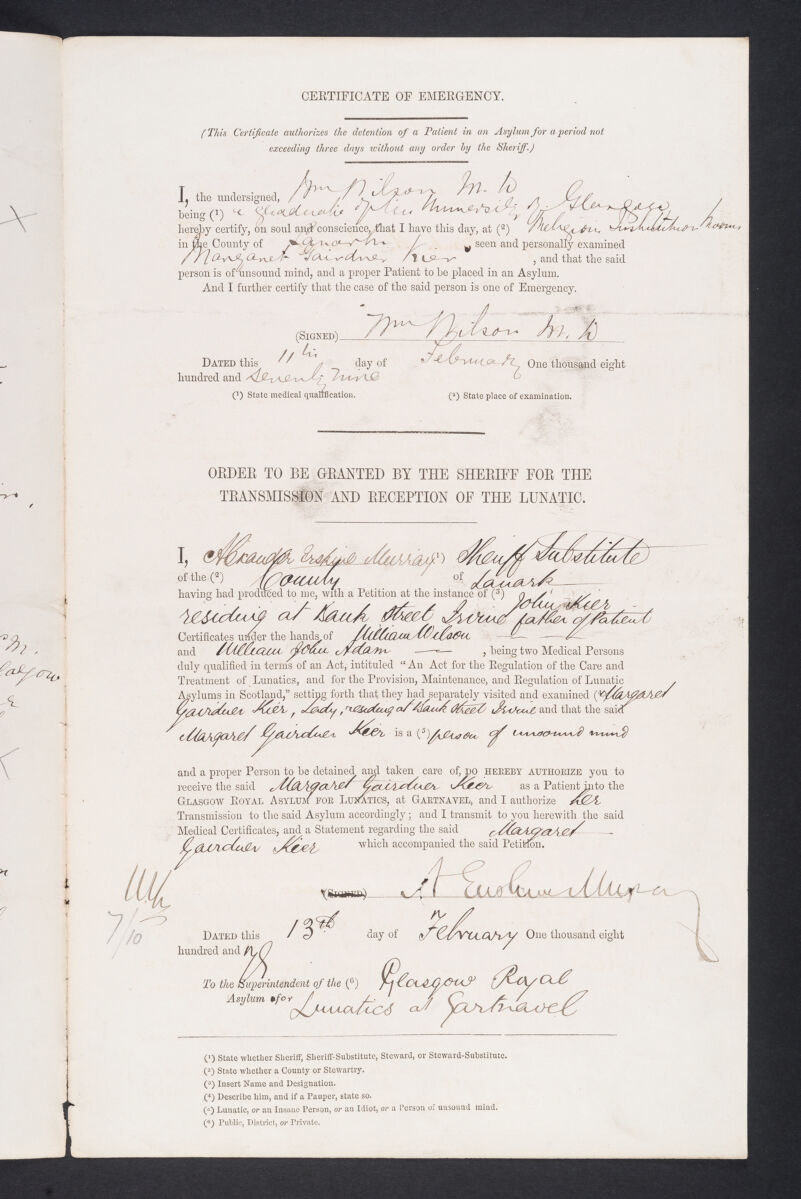 CERTIFICATE OF EMERGENCY.
(This Certificate authorizes the detention of a Patient in an Asylum for a period not
exceeding three days without any order by the Sheriff.)
I, the undersigned, Wm Wilson M. D
being (¹) a graduate of the University of Glasgow
hereby certify, on soul and conscience, that I have this day, at (²) Religious Institution Rooms
in the County of Lanark, seen and personally examined
Margaret Gairdner Kier, and that the said
person is of unsound mind, and a proper Patient to be placed in an Asylum.
And I further certify that the case of the said person is one of Emergency.
(SIGNED) Wm Wilson M. D
DATED this 11th day of February One thousand eight
hundred and Seventy Nine
(¹) State medical qualification. (²) State place of examination.
ORDER TO BE GRANTED BY THE SHERIFF FOR THE
TRANSMISSION AND RECEPTION OF THE LUNATIC.
I, Alexander Erskine Murray (¹) Sheriff Substitute
of the (²) County of Lanark
having had produced to me, with a Petition at the instance of (³) John Kier
residing at Bank Street Irvine father of Patient
Certificates under the hands of William Wilson
and William John Adam, being two Medical Persons
duly qualified in terms of an Act, intituled “An Act for the Regulation of the Care and
Treatment of Lunatics, and for the Provision, Maintenance, and Regulation of Lunatic
Asylums in Scotland,” setting forth that they had separately visited and examined (⁴) Margaret
Gairdner Kier, Lady, residing at Bank Street Irvine and that the said
Margaret Gairdner Keer is a (⁵) person of unsound mind
and a proper Person to be detained and taken care of, DO HEREBY AUTHORIZE you to
receive the said Margaret Gairdner Keer as a Patient into the
GLASGOW ROYAL ASYLUM FOR LUNATICS, at GARTNAVEL, and I authorize her
Transmission to the said Asylum accordingly; and I transmit to you herewith the said
Medical Certificates, and a Statement regarding the said Margaret
Gairdner Keer which accompanied the said Petition.
(SIGNED) A Erskine Murray
7/10
DATED this 13th day of February One thousand eight
hundred and 79
To the Superintendent of the (⁶) Glasgow Royal
Asylum for Lunatics at Gartnavel
(¹) State whether Sheriff, Sheriff-Substitute, Steward, or Steward-Substitute.
(²) State whether a County or Stewartry.
(³) Insert Name and Designation.
(⁴) Describe him, and if a Pauper, state so.
(⁵) Lunatic, or an Insane Person, or an Idiot, or a Person of unsound mind.
(⁶) Public, District, or Private.